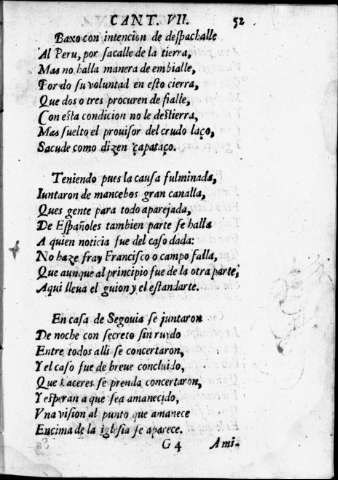 CANT. VII. 52
Baxo con intencion de despachalle
Al Peru, por sacalle de la tierra,
Mas no halla manera de embialle,
Por do su voluntad en esto cierra,
Que dos o tres procuren de fialle,
Con esta condicion no le destierra,
Mas suelto el prouisor del crudo laço,
Sacude como dizen çapataço.
Teniendo pues la causa fulminada,
Iuntaron de mancebos gran canalla,
Ques gente para todo aparejada,
De Españoles tambien parte se halla
A quien noticia fue del caso dada:
No haze fray Francisco o campo falla,
Que aunque al principio fue de la otra parte,
Aqui lleua el guion y el estandarte.
En casa de Segouia se juntaron
De noche con secreto sin ruydo
Entre todos alli se concertaron,
Y el caso fue de breue concluido,
Que Caceres se prenda concertaron,
Y esperan a que sea amanecido,
Vna vision al punto que amanece
Encima de la iglesia se aparece.
G 4 Ami-